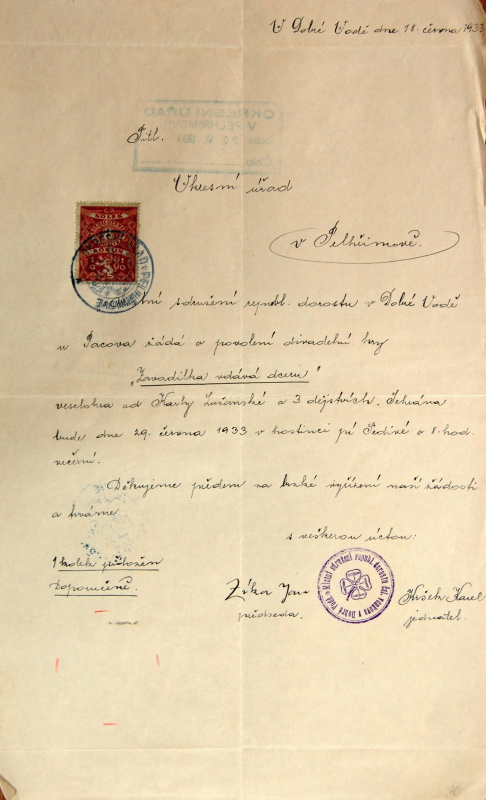 V Dobré Vodě dne 18. června 1933
OKRESNÍ ÚŘAD
V PELHŘIMOVĚ
VI. 1934
Číslo
Titl.
Okresní úřad
v Pelhřimově.
KOLEK
tní sdružení republ. dorostu v Dobré Vodě
u Pacova žádá o povolení divadelní hry
„Zavadilka vdává dceru"
veselohra od Karly Lužanské o 3 dějstvích. Sehrána
bude dne 29. června 1933 v hostinci pí Šedivé o 8. hod.
večerní.
Děkujeme předem za brzké vyřízení naší žádosti
a trváme
s veškerou úctou:
1 kolek přiložen
Doporučeně.
Žáka Jan
předseda.
Místní sdružení republ. dorostu čsl. venkova v Dobré Vodě
Karel
jednatel.